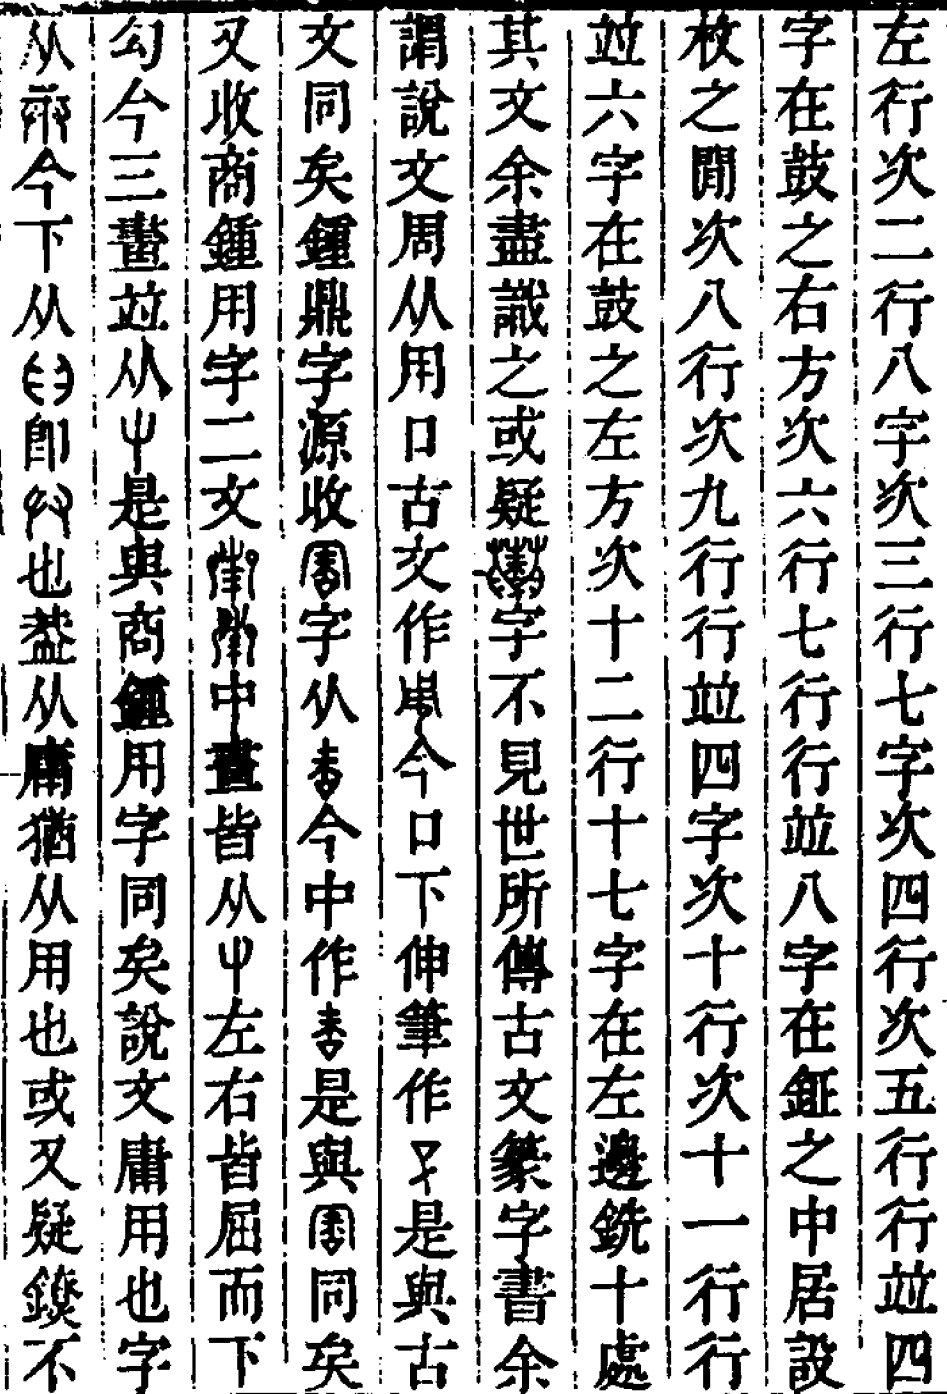 左行次二行八字次三行七字次四行次五行行竝四
字在鼓之右方次六行七行行竝八字在鉦之中居設
枚之閒次八行次九行行竝四字次十行次十一行行
竝六字在鼓之左方次十二行十七字在左邊銑十處
其文余盡識之或疑字不見世所傳古文篆字書余
謂說文周从用口古文作今口下伸筆作是與古
文同矣鍾鼎字源收字从今中作是與同矣
又收商鍾用字二文中畫皆从屮左右皆屈而下
勾今三畫竝从屮是與商鍾用字同矣說文庸用也字
从今下从卽也葢从庸猶从用也或又疑鍨不